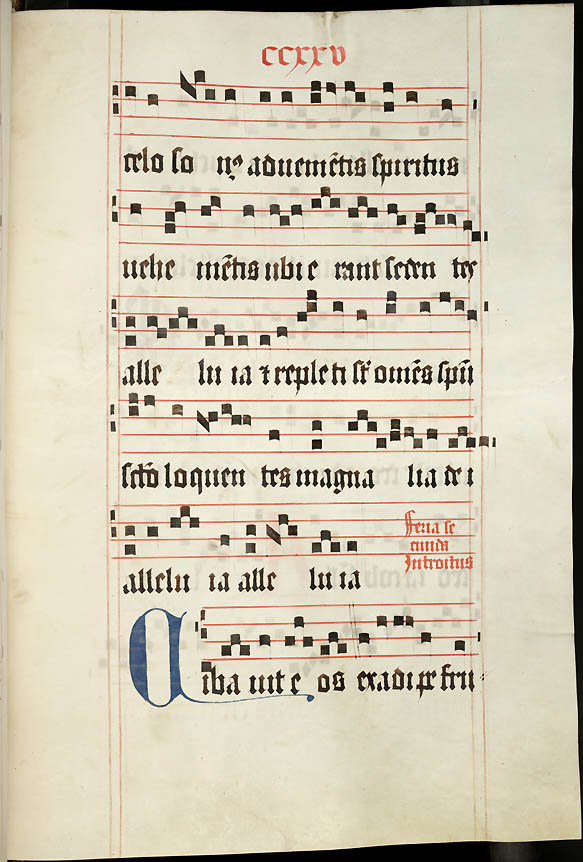 ccxxv
celo so nꝰ aduemẽtis spiritus
uehe mẽtis ubi e rant seden tes
alle lu ia ⁊ repleti sĩ omẽs spũ
scto loquen tes magna lia de i
allelu ia alle lu ia
Feria se
cunda
Introitus
Ciba uit e os ex adi pe fru